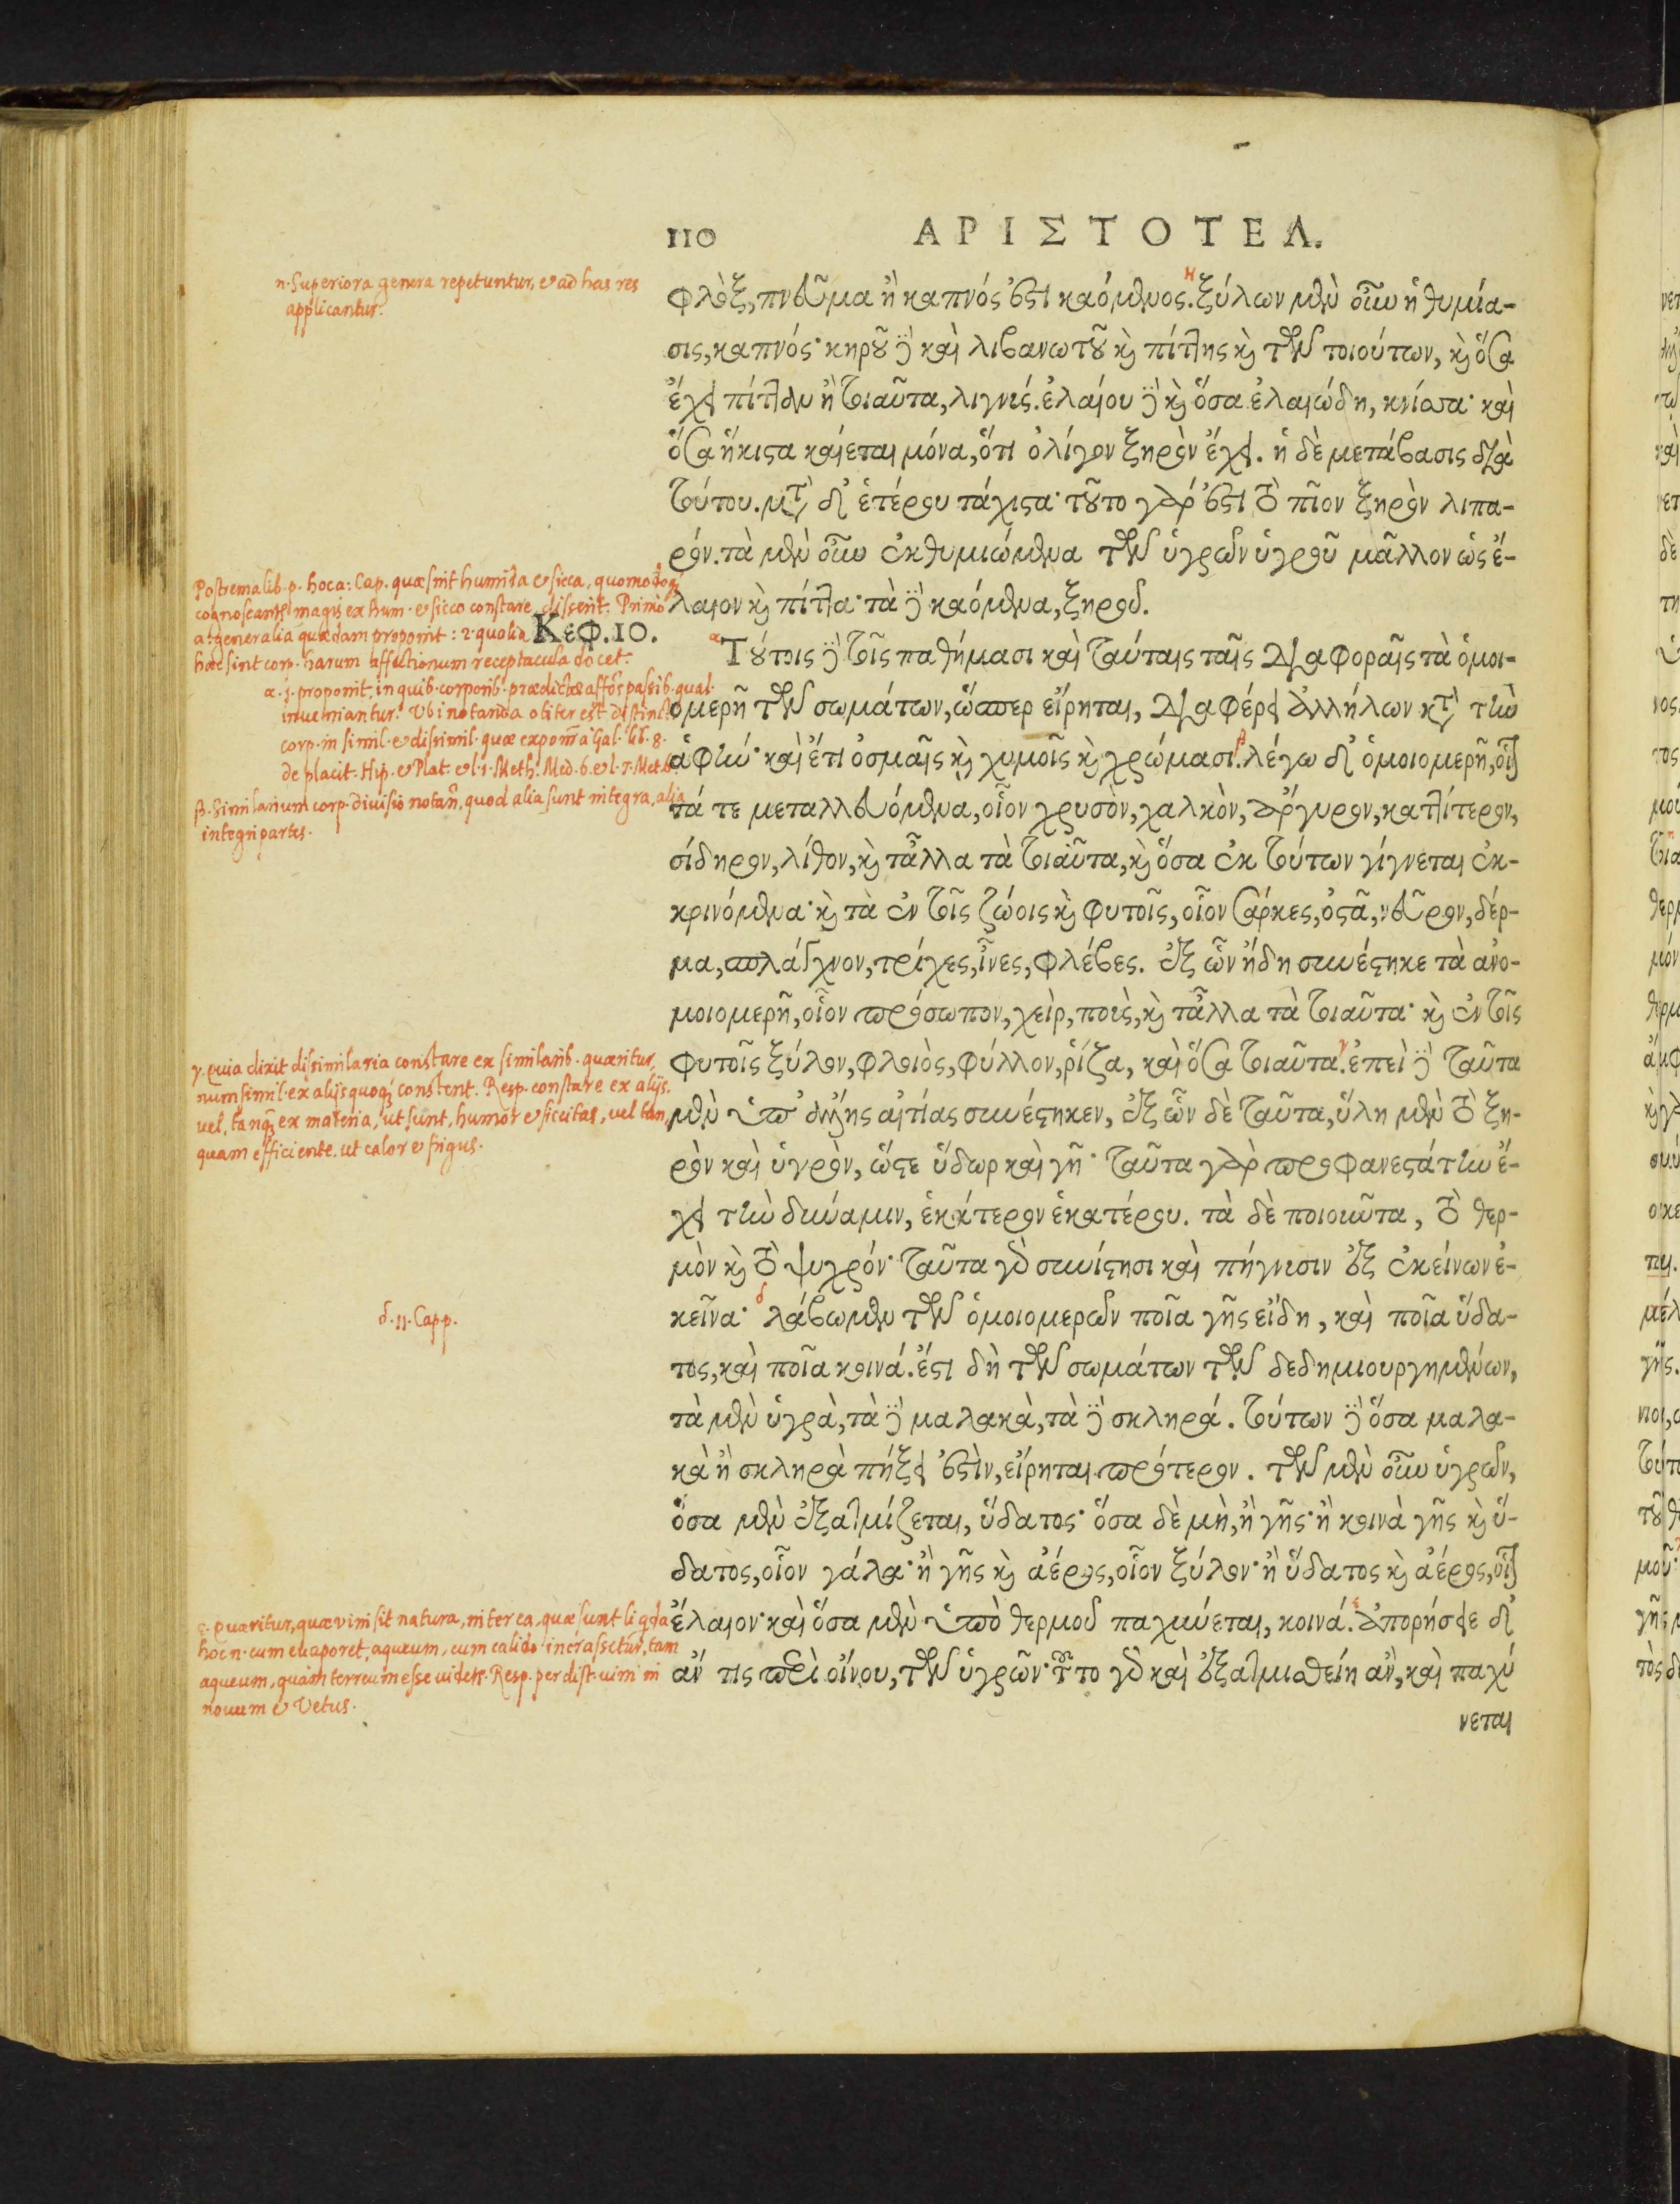 110 ΑΡΙΣΤΟΤΕΛ.
φλὸξ, πνεῦμα ἢ καπνός ἐστι καόμενος. ξύλων μὲν οὖν ἡ θυμία-
σις, καπνός· κηροῦ δὲ καὶ λιβανωτοῦ καὶ πίττης καὶ τῶν τοιούτων, καὶ ὅσα
ἔχει πίτταν ἢ τοιαῦτα, λιγνύς. ἐλαίου δὲ καὶ ὅσα ἐλαιώδη, κνίσσα· καὶ
ὅσα ἥκιστα καίεται μόνα, ὅτι ὀλίγον ξηρὸν ἔχει. ἡ δὲ μετάβασις διὰ
τούτου. μετὰ δ' ἑτέρου τάχιστα· τοῦτο γάρ ἐστι τὸ πῖον ξηρὸν λιπα-
ρόν. τὰ μὲν οὖν ἐκθυμιώμενα τῶν ὑγρῶν ὑγροῦ μᾶλλον ὡς ἔ-
λαιον καὶ πίττα· τὰ δὲ καόμενα, ξηροῦ.
Κεφ. 10.
Τούτοις δὲ τοῖς παθήμασι καὶ ταύταις ταῖς διαφοραῖς τὰ ὁμοι-
ομερῆ τῶν σωμάτων, ὥσπερ εἴρηται, διαφέρει ἀλλήλων κατὰ τὴν
ἁφήν· καὶ ἔτι ὀσμαῖς καὶ χυμοῖς καὶ χρώμασι. λέγω δ' ὁμοιομερῆ, οἷον
τά τε μεταλλευόμενα, οἷον χρυσὸν, χαλκὸν, ἄργυρον, καττίτερον,
σίδηρον, λίθον, καὶ τἆλλα τὰ τοιαῦτα, καὶ ὅσα ἐκ τούτων γίγνεται ἐκ-
κρινόμενα· καὶ τὰ ἐν τοῖς ζώοις καὶ φυτοῖς, οἷον σάρκες, ὀστᾶ, νεῦρον, δέρ-
μα, σπλάγχνον, τρίχες, ἶνες, φλέβες. ἐξ ὧν ἤδη συνέστηκε τὰ ἀνο-
μοιομερῆ, οἷον πρόσωπον, χεὶρ, ποὺς, καὶ τἆλλα τὰ τοιαῦτα· καὶ ἐν τοῖς
φυτοῖς ξύλον, φλοιὸς, φύλλον, ῥίζα, καὶ ὅσα τοιαῦτα. ἐπεὶ δὲ ταῦτα
μὲν ὑπ' ἄλλης αἰτίας συνέστηκεν, ἐξ ὧν δὲ ταῦτα, ὕλη μὲν τὸ ξη-
ρὸν καὶ ὑγρὸν, ὥστε ὕδωρ καὶ γῆ· ταῦτα γὰρ προφανεστάτην ἔ-
χει τὴν δύναμιν, ἑκάτερον ἑκατέρου. τὰ δὲ ποιοῦντα, τὸ θερ-
μὸν καὶ τὸ ψυχρόν· ταῦτα γὰρ συνίστησι καὶ πήγνυσιν ἐξ ἐκείνων ἐ-
κεῖνα· λάβωμεν τῶν ὁμοιομερῶν ποῖα γῆς εἴδη, καὶ ποῖα ὕδα-
τος, καὶ ποῖα κοινά. ἔστι δὴ τῶν σωμάτων τῶν δεδημιουργημένων,
τὰ μὲν ὑγρὰ, τὰ δὲ μαλακὰ, τὰ δὲ σκληρά. τούτων δὲ ὅσα μαλα-
κὰ ἢ σκληρὰ πήξει ἐστὶν, εἴρηται πρότερον. τῶν μὲν οὖν ὑγρῶν,
ὅσα μὲν ἐξατμίζεται, ὕδατος· ὅσα δὲ μὴ, ἢ γῆς· ἢ κοινὰ γῆς καὶ ὕ-
δατος, οἷον γάλα· ἢ γῆς καὶ ἀέρος, οἷον ξύλον· ἢ ὕδατος καὶ ἀέρος, οἷον
ἔλαιον· καὶ ὅσα μὲν ὑπὸ θερμοῦ παχύνεται, κοινά. ἀπορήσειε δ'
ἄν τις περὶ οἴνου, τῶν ὑγρῶν· τοῦτο γὰρ καὶ ἐξατμισθείη ἂν, καὶ παχύ
νεται
η. Superiora genera repetuntur, & ad has res
applicantur.
Postrema lib. p. hoc a: Cap. quæ sint humida & sicca, quomodoq;
cognoscantur magis ex hum. & sicco constare, disserit. Primò
a. generalia quædam proponit: 2. quolia
hæc sint corp. harum affectionum receptacula docet.
α. j. proponit, in quib. corporib. prædictæ affōs passib. qual.
inueniantur. Vbi notanda obiter est distinct.
corp. in simil. & dissimil. quæ exponit a Gal. lib. 8.
de placit. Hip. & Plat. & l. 1. Meth. Med. 6. & l. 7. Met. 6.
β. Similarium corp. diuisio notan., quod alia sunt integra, alia
integri partes.
γ. Quia dixit dissimilaria constare ex similarib. quæritur,
num simil. ex alijs quoq; constent. Resp. constare ex alijs.
vel, tanq; ex materia, ut sunt, humor & siccitas, vel tan,
quam efficiente. ut calor & frigus.
δ. 11. Capp.
ε. Quæritur, quæ vini sit natura, inter ea, quæ sunt liqda
hoc n. cum euaporet, aqueum, cum calido incrassetur, tam
aqueum, quàm terreum esse videtr. Resp. per dist. uini in
nouum & Vetus.